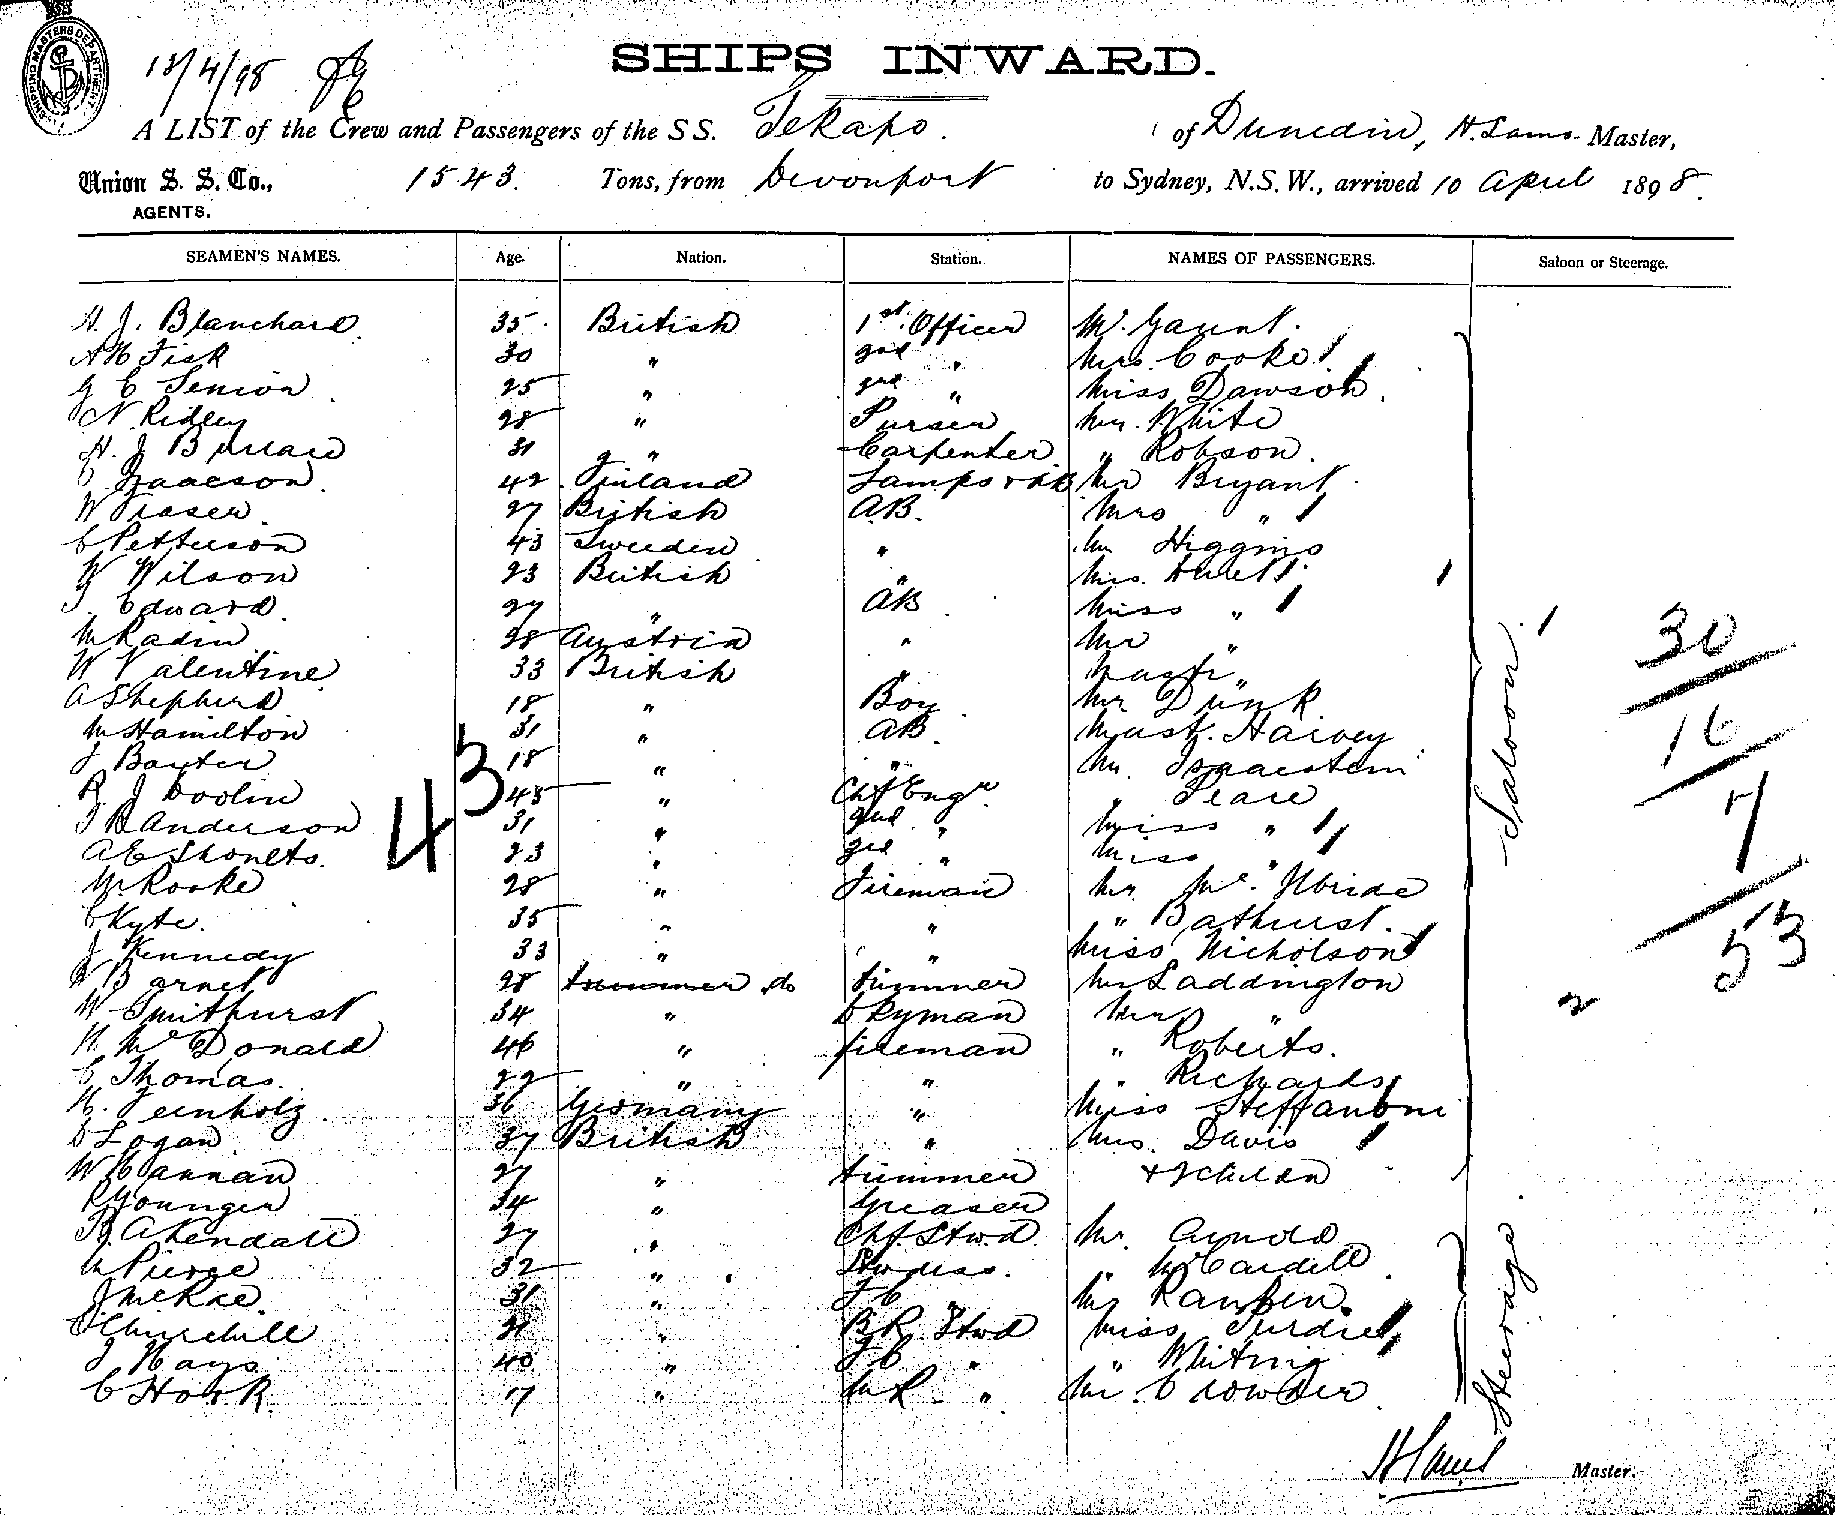 SHIPPING MASTERS DEPARTMENT
13/4/98
SHIPS INWARD.
A LIST of the Crew and Passengers of the S S. Tekapo. of Dunedin, H. Sams. Master,
Union S. S. Co., 1543. Tons, from Devonport to Sydney, N.S.W., arrived 10 April 1898.
AGENTS.
SEAMEN'S NAMES. Age. Nation. Station. NAMES OF PASSENGERS. Saloon or Steerage.
H. J. Blanchard 35 British 1st Officer Mr. Gaunt.
A H Fisk 30 " 2nd " Mrs. Cooke
G C Senior 25 " 3rd " Miss Dawson
N. Ridley 28 " Purser Mr. White
H. J. 31 " Carpenter " Robson.
C Isaacson. 42 Finland Lamps & AB Mr Bryant
W Fraser 27 British A.B. Mrs "
C Petterson 43 Sweeden " Mr Higgins
W Wilson 23 British " Mrs.
T. Edward 27 " AB Miss "
M Radin 28 Austria " Mr "
W Valentine 33 British " Mastr "
A Shepherd 18 " Boy Mr Dunk
M Hamilton 31 " AB Mast. Harvey
J Baxter 18 " " Mr. Isaacstein
R. J Doolin 45 " Chf Engr. " Peare
J B Anderson 31 " 2nd " Miss "
A E 23 " 3rd " Miss "
M Rooke 28 " Fireman Mr McIlbride
C Kyte. 35 " " " Bathurst.
J Kennedy 33 " " Miss Nicholson
W Barnet 28 trimmer do trimmer Mr Laddington
W Smithurst 34 " Dkyman Mrs "
H McDonald 46 " fireman " Roberts.
C Thomas. 22 " " " Richards
H. Teinholz 36 Germany " Miss Steffanoni
D Logan 37 British " Mrs. Davis
W Hannan 27 " trimmer + 2 Children
R Younger 34 " Greaser
B. A Kendall 27 " Chf. Stwd Mr. Arnold
M Pierce 32 " Stwdess. " McCardell
J McRae. 31 " F C " Mr Rankin.
Churchill 21 " B.R. Stwd Miss Purdie
J Hays 40 " F C " " Whiting
C Hork 17 " M R " Mr. Crowder
43
Saloon
Steerage
30
16
7
53
2
H Sams Master.